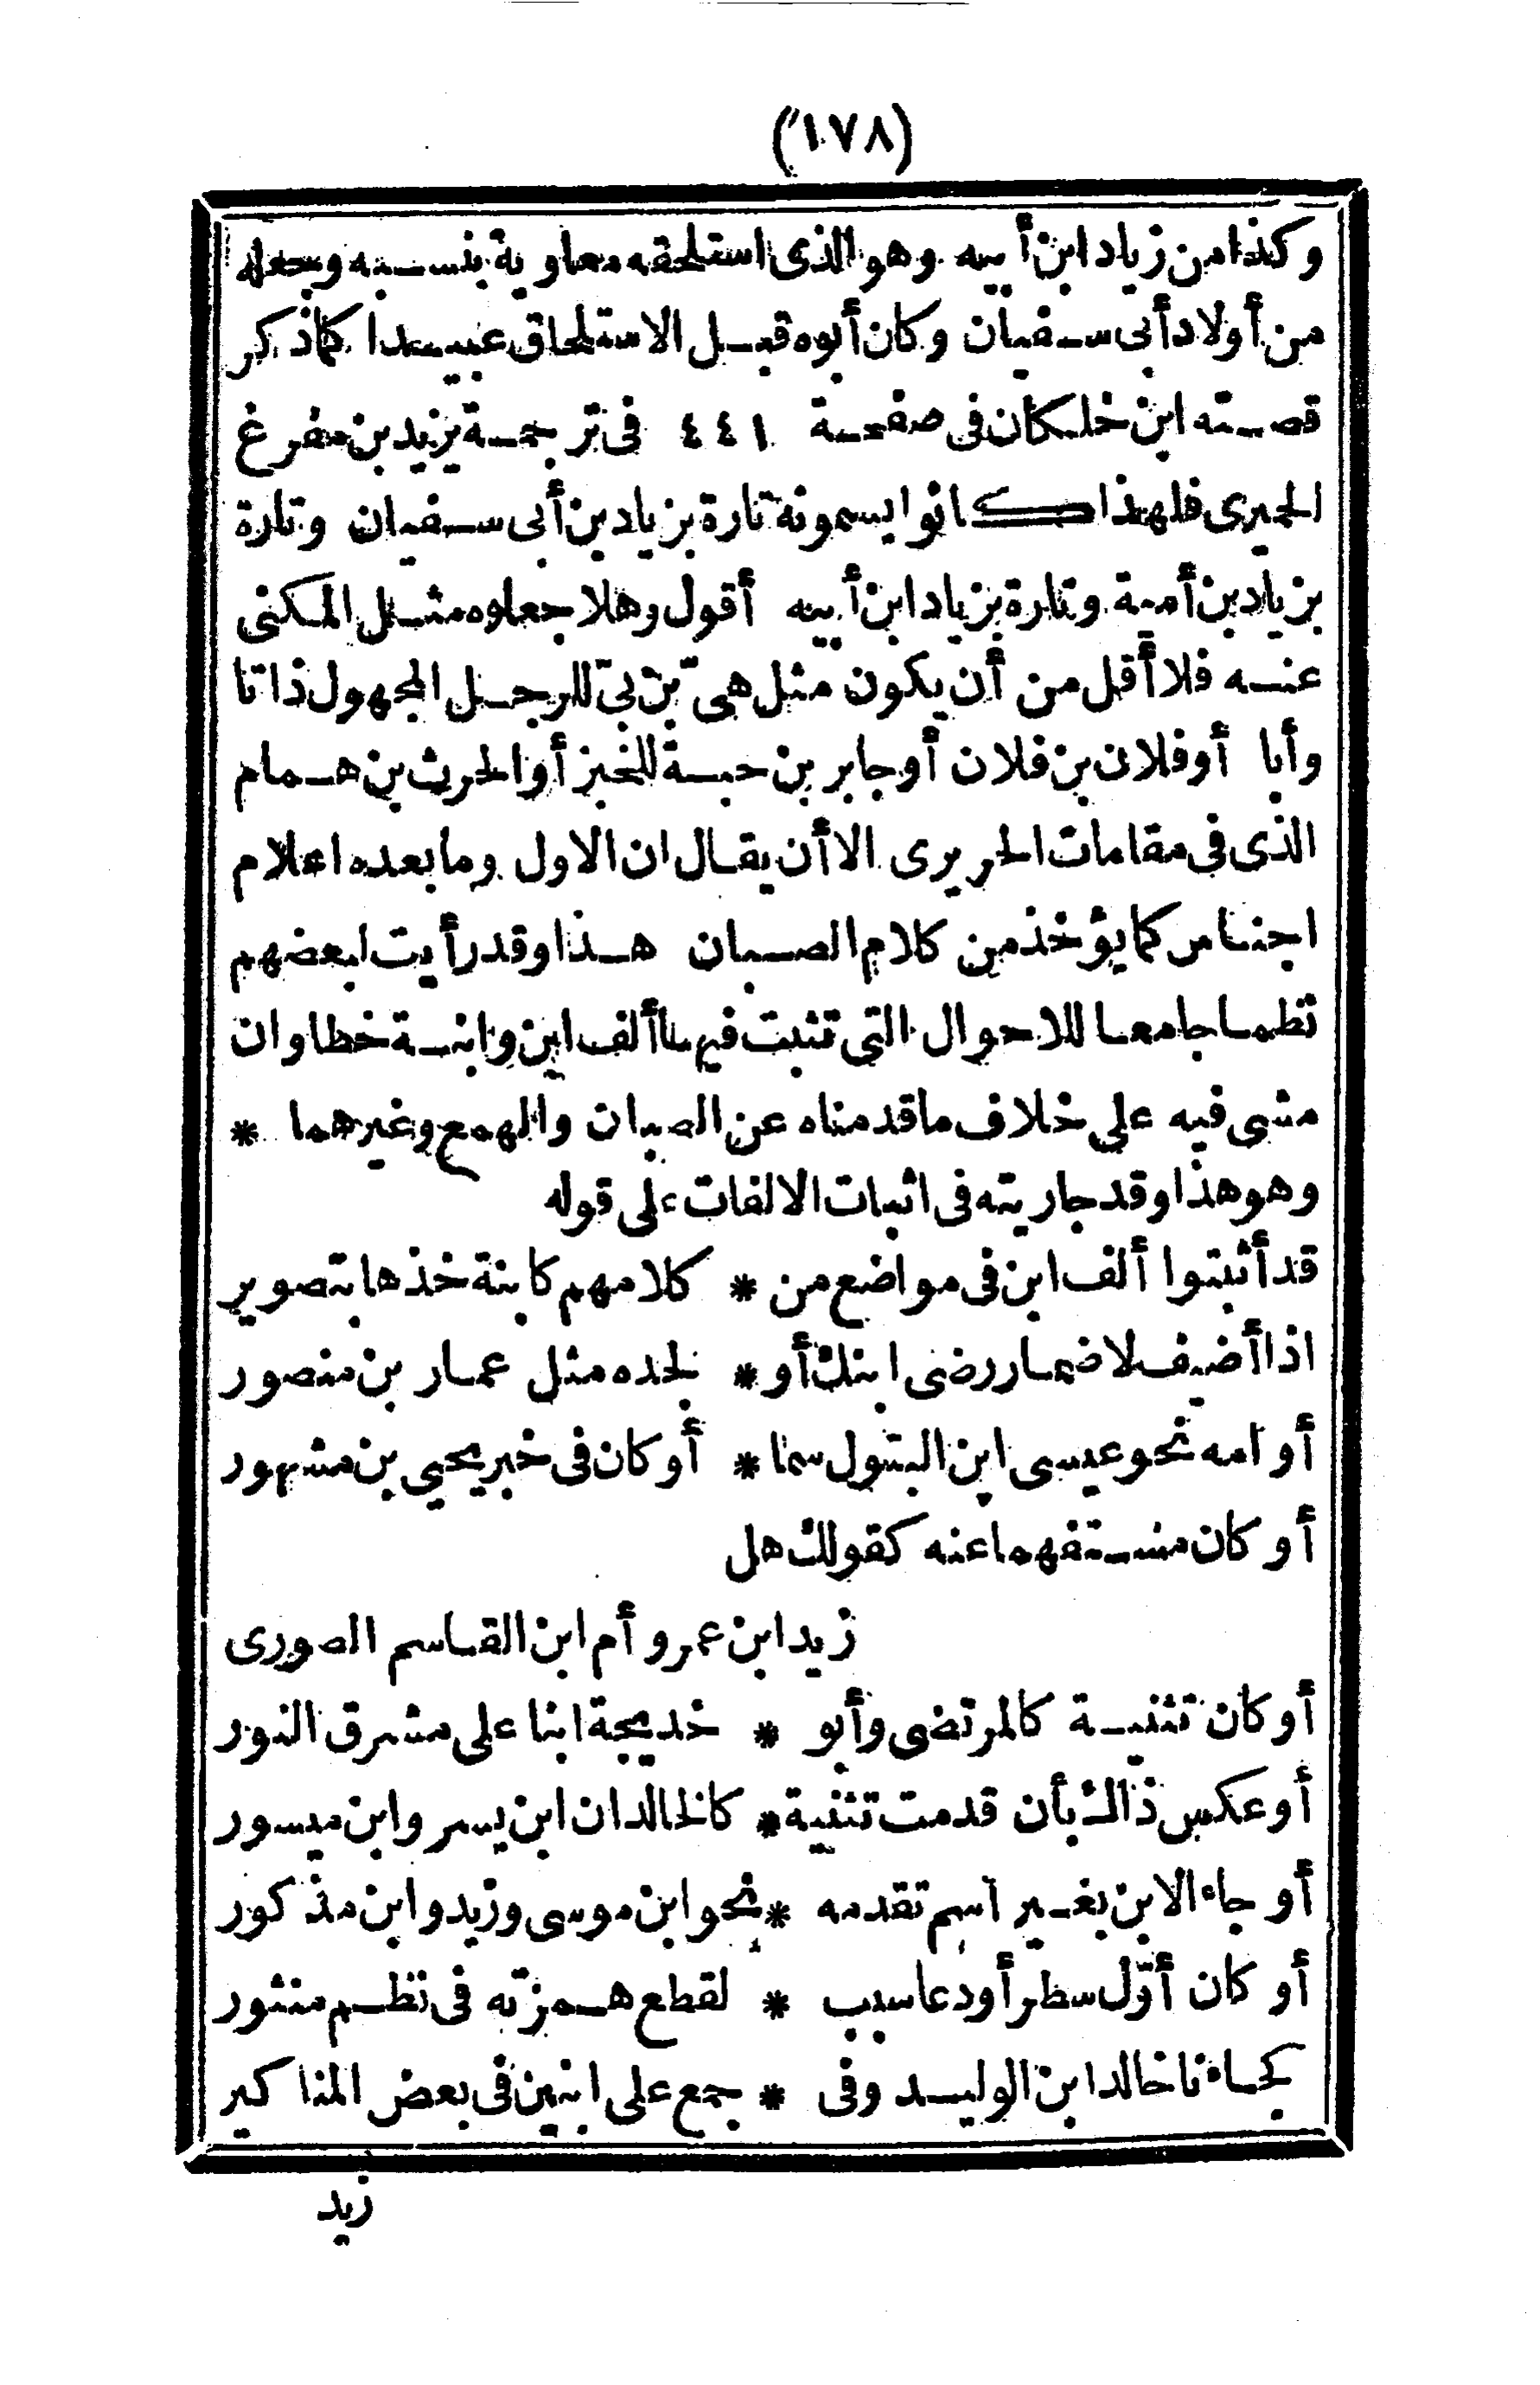 (١٧٨)
وكذا من زياد ابن أبيه وهو الذى استلحقه معاوية بنسبه وجعله
من أولاد أبى سفيان وكان أبوه قبل الاستلحاق عبيدا كما ذكر
قصته ابن خلكان فى صفحة ٤٤١ فى ترجمة يزيد بن مفرغ
الحميرى فلهذا كانوا يسمونه تارة بزياد بن أبى سفيان وتارة
بزياد بن أمية وتارة بزياد ابن أبيه أقول وهلا جعلوه مثل المكنى
عنه فلا أقل من أن يكون مثل هىّ بن بىّ للرجل المجهول ذاتا
وأبا أو فلان بن فلان أو جابر بن حبة للخبز أو الحرث بن همام
الذى فى مقامات الحريرى الا أن يقال ان الاول وما بعده اعلام
اجناس كما يؤخذ من كلام الصبان هذا وقد رأيت لبعضهم
نظما جامعا للاحوال التى تثبت فيها ألف ابن وابنة خطا وان
مشى فيه على خلاف ما قدمناه عن الصبان والهمع وغيرهما *
وهو هذا وقد جاريته فى اثبات الالفات على قوله
قد أثبتوا ألف ابن فى مواضع من * كلامهم كابنة خذها بتصوير
اذا أضيف لاضمار رضى ابنك أو * لجده مثل عمار بن منصور
أو امه نحو عيسى ابن البتول سما * أو كان فى خبر يحيى بن مشهور
أو كان مستفهما عنه كقولك هل
زيد ابن عمرو أم ابن القاسم الصورى
أو كان تثنية كالمرتضى وأبو * خديجة ابنا على مشرق النور
أو عكس ذاك بأن قدمت تثنية * كالخالدان ابن يسر وابن ميسور
أو جاء الابن بغير اسم تقدمه * نحو ابن موسى وزيد وابن مذكور
أو كان أوّل سطر أو دعا سبب * لقطع همزته فى نظم منثور
كجاءنا خالد ابن الوليد وفى * جمع على ابنين فى بعض المناكير
زيد